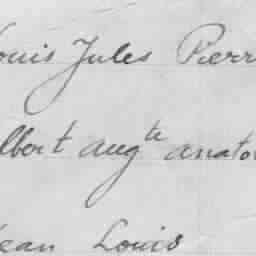 ouis Jules Pierr
lbert augte anato
ean Louis